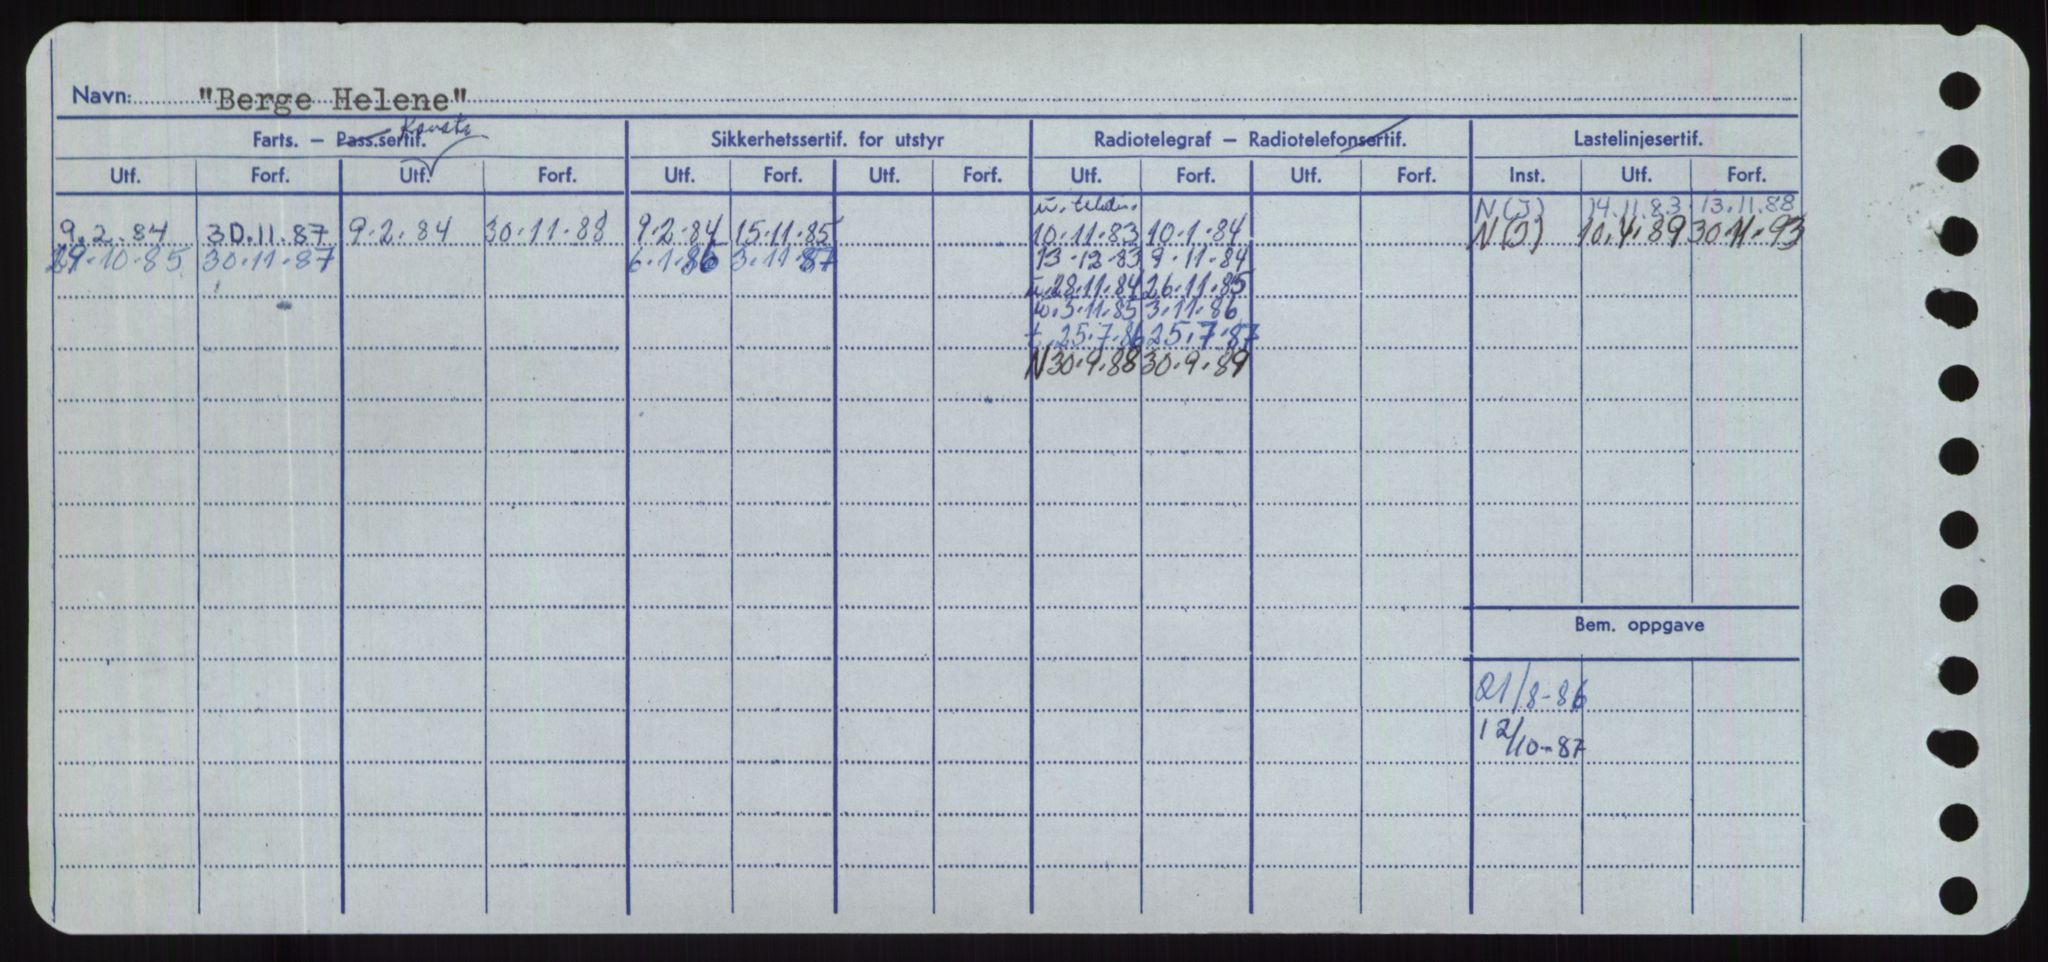 Navn: "Berge Helene"
Farts. — Pass.sertif. Konstr Sikkerhetssertif. for utstyr Radiotelegraf — Radiotelefonsertif. Lastelinjesertif.
Utf. Forf. Utf. Forf. Utf. Forf. Utf. Forf. Utf. Forf. Utf. Forf. Inst. Utf. Forf.
N(I) 14.11.83 13.11.88
9.2.84 30.11.87 9.2.84 30.11.88 9.2.84 15.11.85 10.11.83 10.1.84 N(I) 10.4.89 30.11.93
29.10.85 30.11.87 6.1.86 3.11.87 13.12.83 9.11.84
28.11.84 26.11.85
3.11.85 3.11.86
t. 25.7.86 25.7.87
N 30.9.88 30.9.89
Bem. oppgave
21/8-86
12/10-87